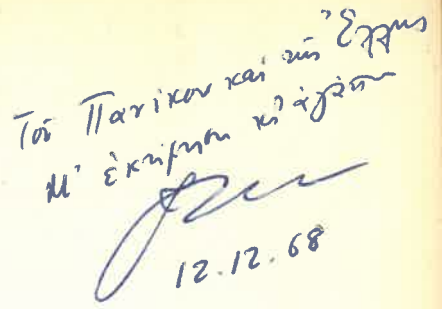 Τοῦ Πανίκου καὶ τῆς Ἕλλης
Μ' ἐκτίμηση κι' ἀγάπη
12.12.68